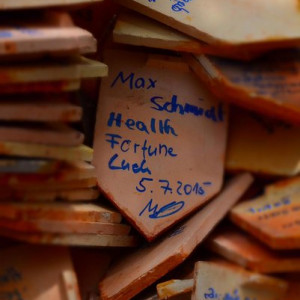 Max
Schmidt
Health
Fortune
Luck
5.7.2015